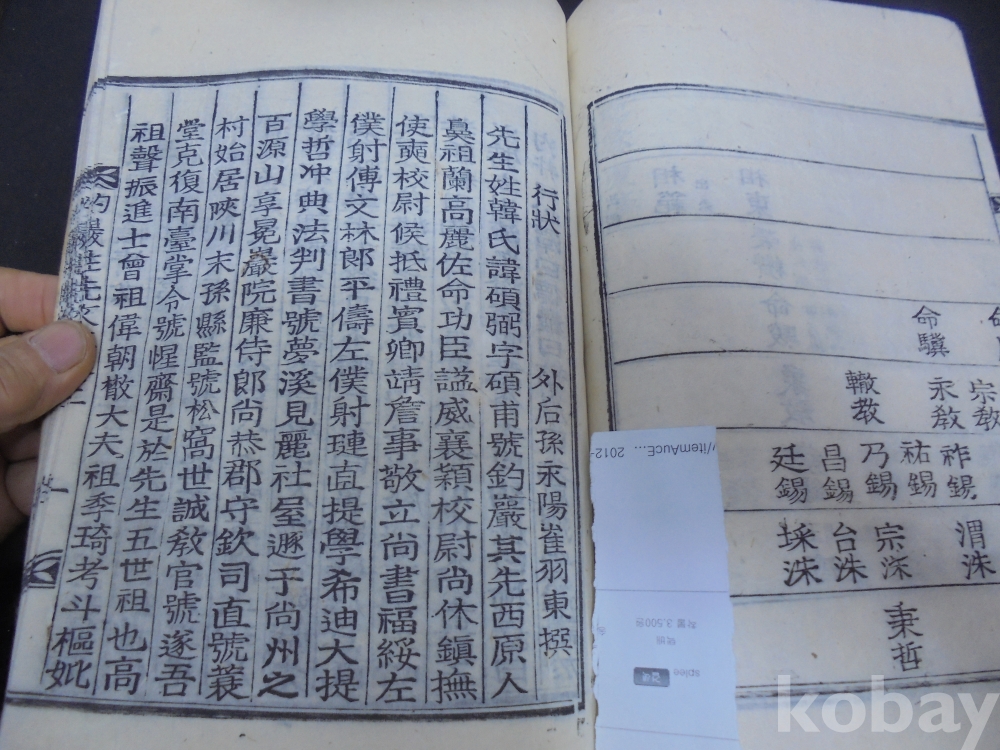 命驥
宗教
永教
轍教
祚錫
祐錫
乃錫
昌錫
廷錫
渭洙
宗洙
台洙
埰洙
秉哲
行狀 外后孫永陽崔羽東撰
先生姓韓氏諱碩弼字碩甫號釣巖其先西原人
鼻祖蘭高麗佐命功臣謚威襄穎校尉尚休鎭撫
使奭校尉侯抵禮賓卿靖詹事敬立尚書福綏左
僕射傅文林郞平儔左僕射璉直提學希迪大提
學哲冲典法判書號夢溪見麗社屋遯于尚州之
百源山享冕巖院廉侍郞尚恭郡守欽司直號蓑
村始居陜川末孫縣監號松窩世誠教官號遂吾
堂克復南臺掌令號惺齋是於先生五世祖也高
祖聲振進士曾祖偉朝散大夫祖季琦考斗樞妣
itemAucE... 2012-
착불 3,500원
kobay